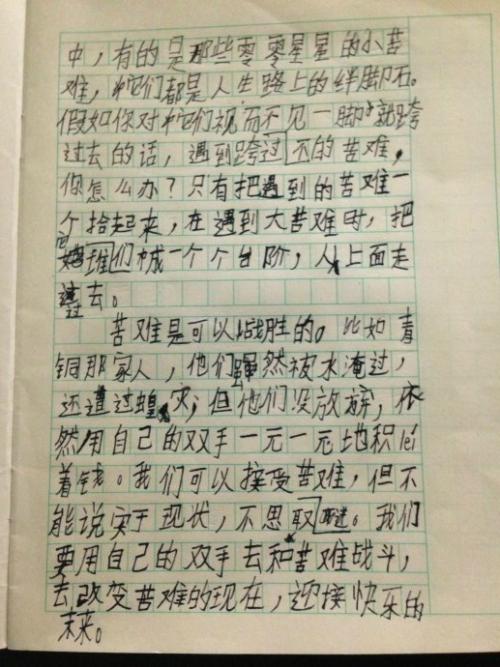 中，有的是那些零零星星的小苦
难，它们都是人生路上的绊脚石。
假如你对它们视而不见一脚就跨
过去的话，遇到跨过不的苦难，
你怎么办？只有把遇到的苦难一
个拾起来，在遇到大苦难时，把
它堆们成一个个台阶，从上面走
过去。
苦难是可以战胜的。比如青
铜那家人，他们虽然被水淹过，
还遭过蝗灾；但他们没放弃，依
然用自己的双手一元一元地积
着钱。我们可以接受苦难，但不
能说实于现状，不思取。我们
要用自己的双手去和苦难战斗，
去改变苦难的现在，迎接快乐的
未来。